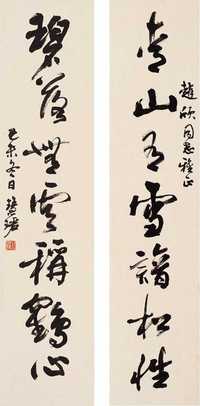 趙欣同志雅正
青山有雪諳松性
碧落無雲稱鶴心
己未冬日